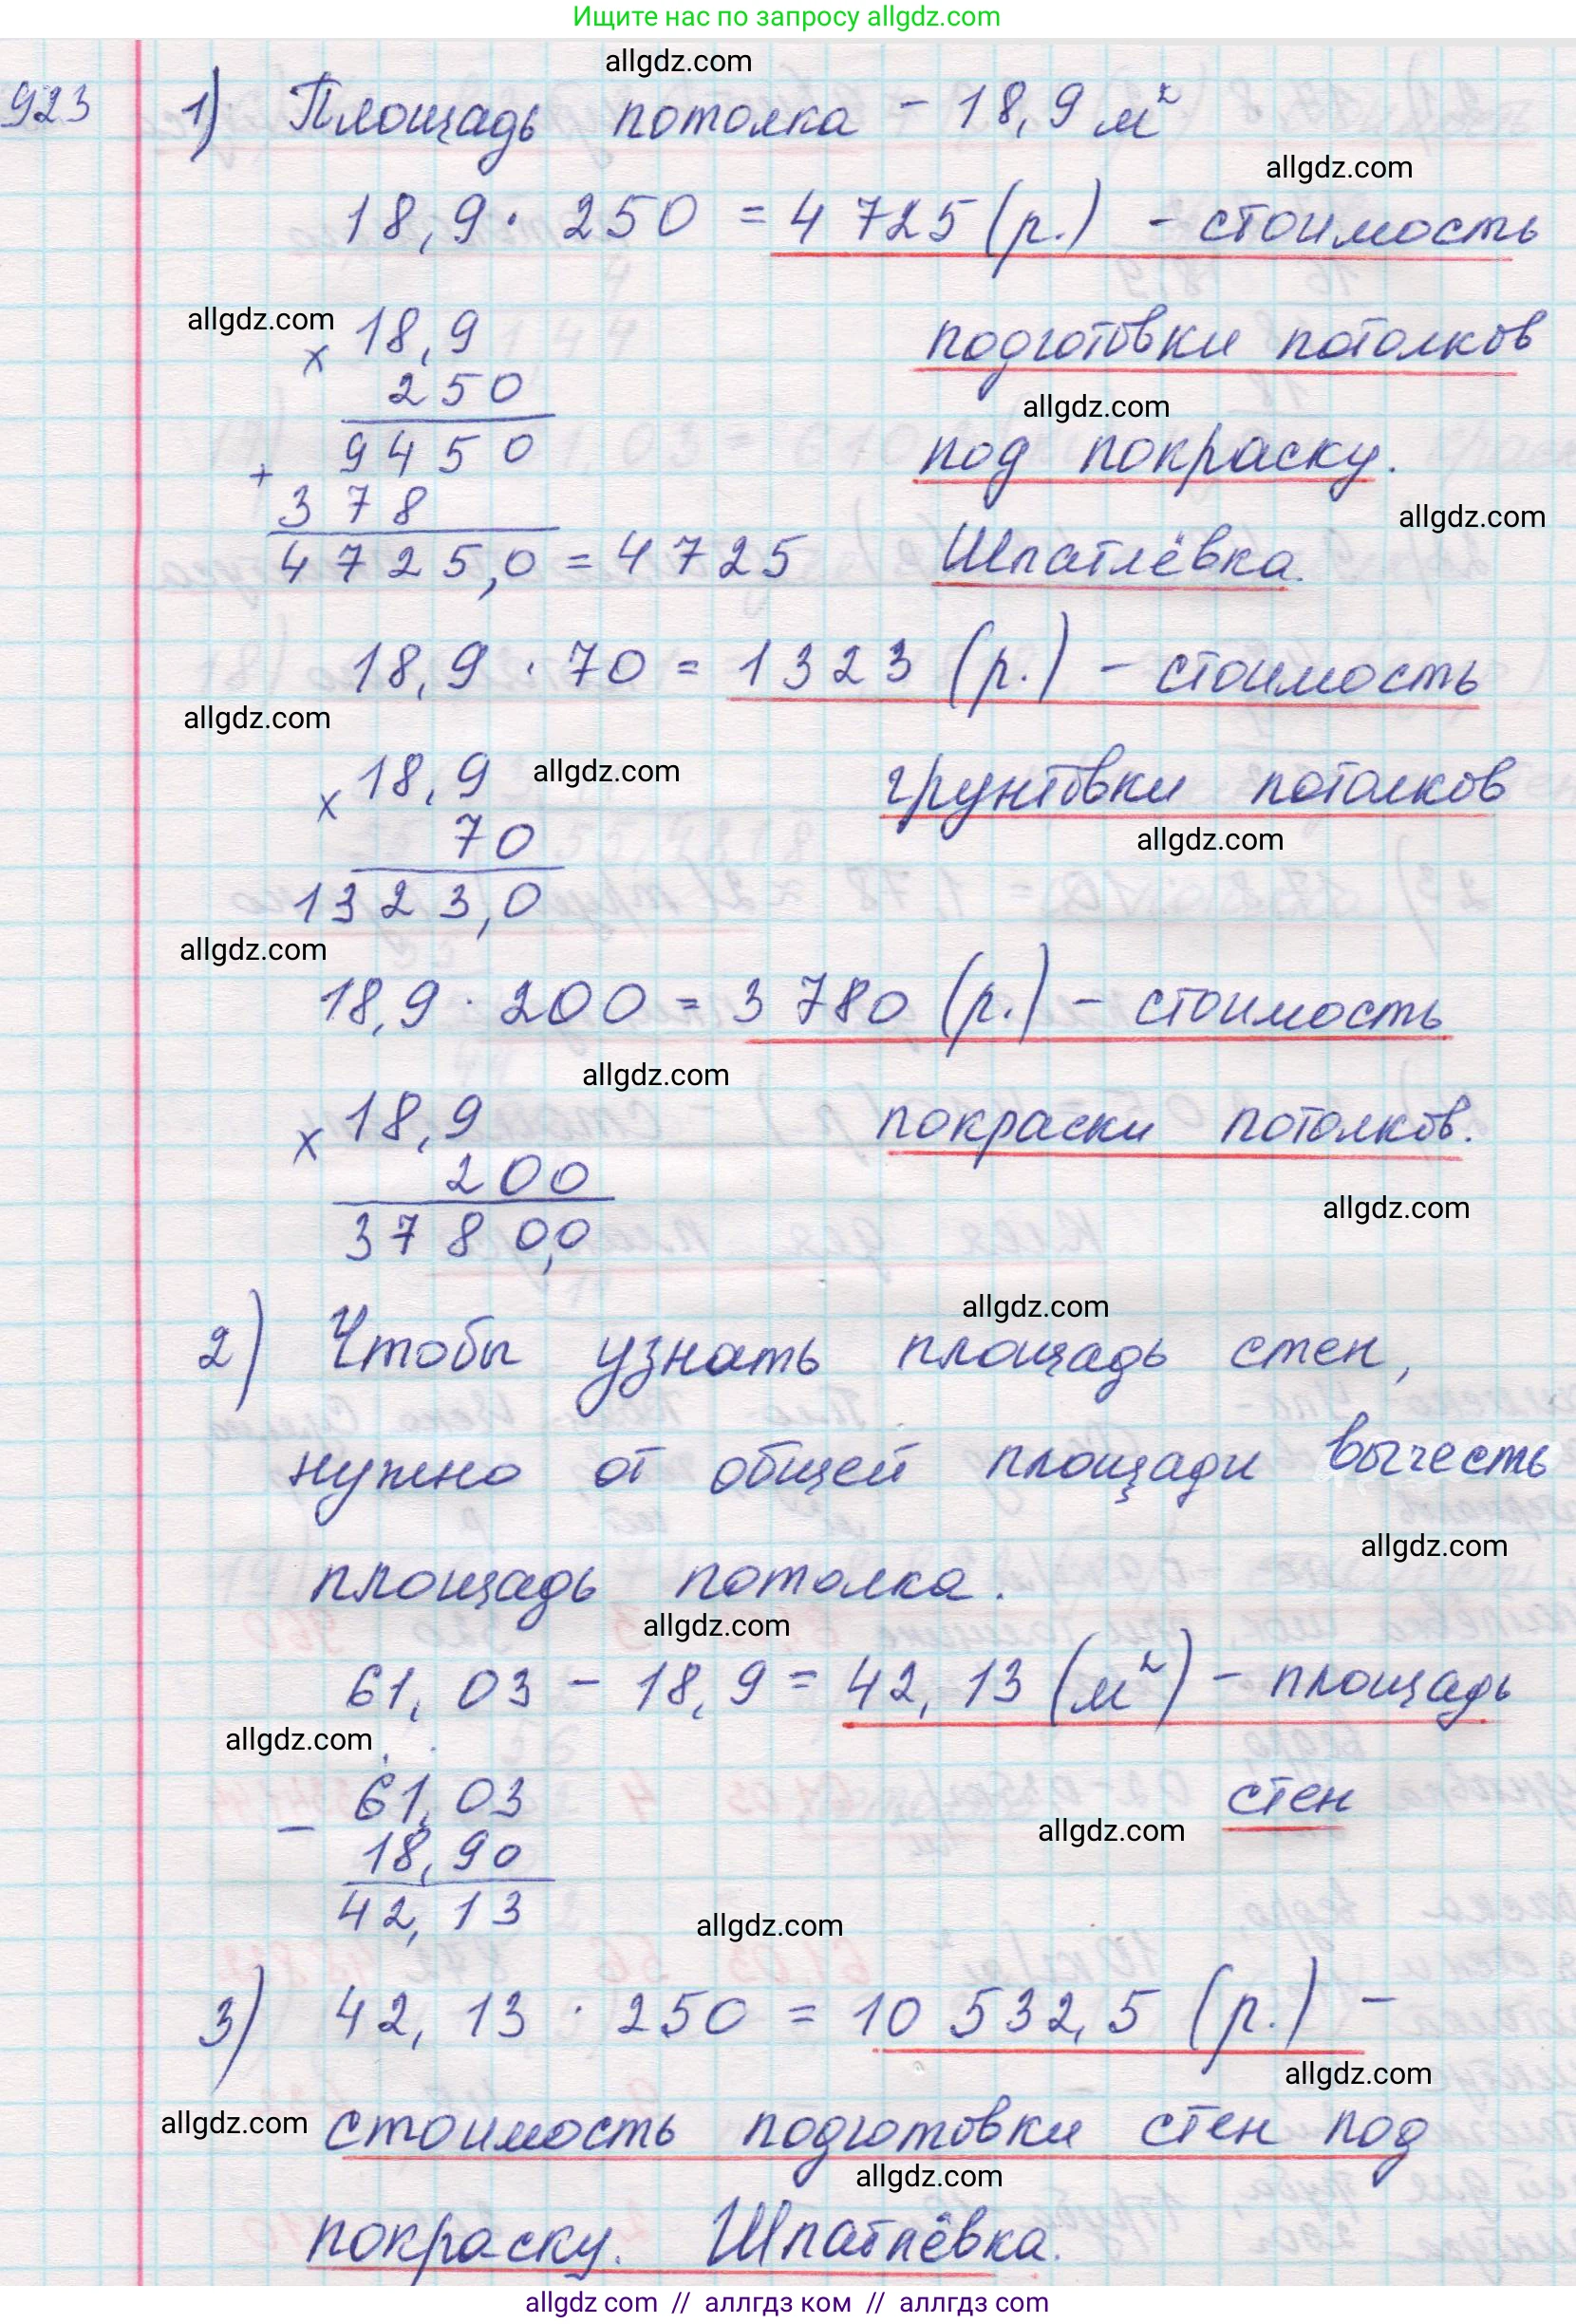 Ищите нас по запросу allgdz.com
allgdz.com
923 1) Площадь потолка - 18,9 м²
allgdz.com
18,9 · 250 = 4 725 (р.) - стоимость
allgdz.com
× 18,9
подготовки потолков
250
allgdz.com
9450
под покраску.
+ 378
allgdz.com
4725,0 = 4725 Шпатлёвка.
18,9 · 70 = 1323 (р.) - стоимость
allgdz.com
× 18,9 allgdz.com
грунтовки потолков
70
allgdz.com
1323,0
allgdz.com
18,9 · 200 = 3 780 (р.) - стоимость
allgdz.com
× 18,9
покраски потолков.
200
allgdz.com
3780,0
allgdz.com
2) Чтобы узнать площадь стен,
нужно от общей площади вычесть
allgdz.com
площадь потолка.
allgdz.com
61,03 - 18,9 = 42,13 (м²) - площадь
allgdz.com
- 61,03
стен
allgdz.com
18,90
42,13
allgdz.com
3) 42,13 · 250 = 10 532,5 (р.) -
allgdz.com
allgdz.com
стоимость подготовки стен под
allgdz.com
покраску. Шпатлёвка.
allgdz com // аллгдз ком // аллгдз com